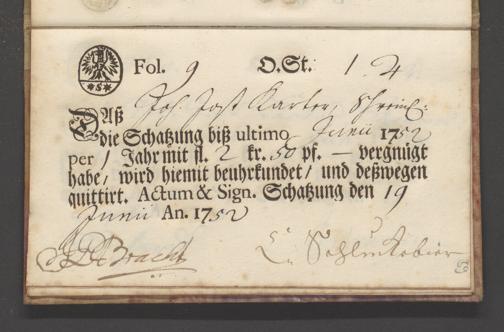 S
Fol. 9 O.St. 1. 4
Daß Joh. Jost Karter, Schrein:
die Schatzung biß ultimo Junii 1752
per 1 Jahr mit fl. 2 kr. 50 pf. — vergnügt
habe/ wird hiemit beuhrkundet/ und deßwegen
quittirt. Actum & Sign. Schatzung den 19
Junii An. 1752
Bracht